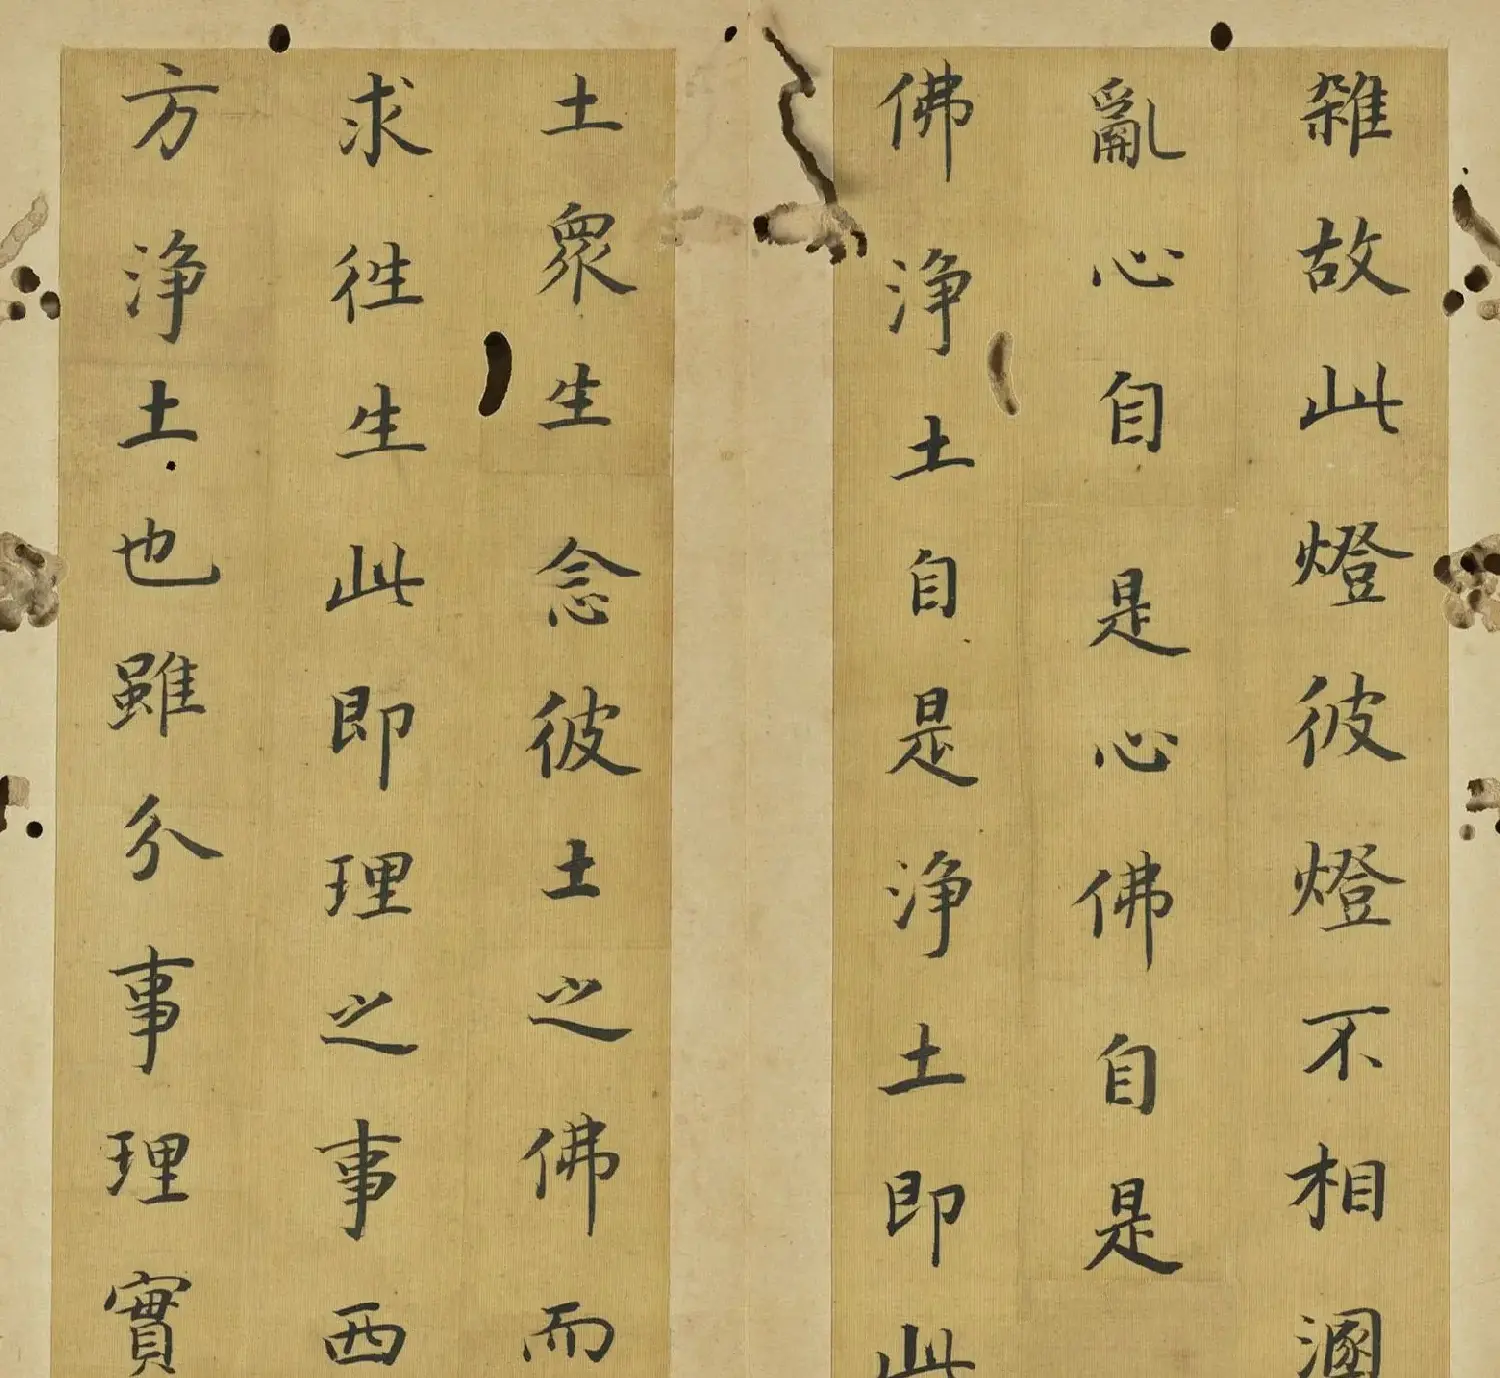 雜故此燈彼燈不相溷
亂心自是心佛自是
佛淨土自是淨土即此
土衆生念彼土之佛而
求徃生此即理之事西
方淨土也雖分事理實